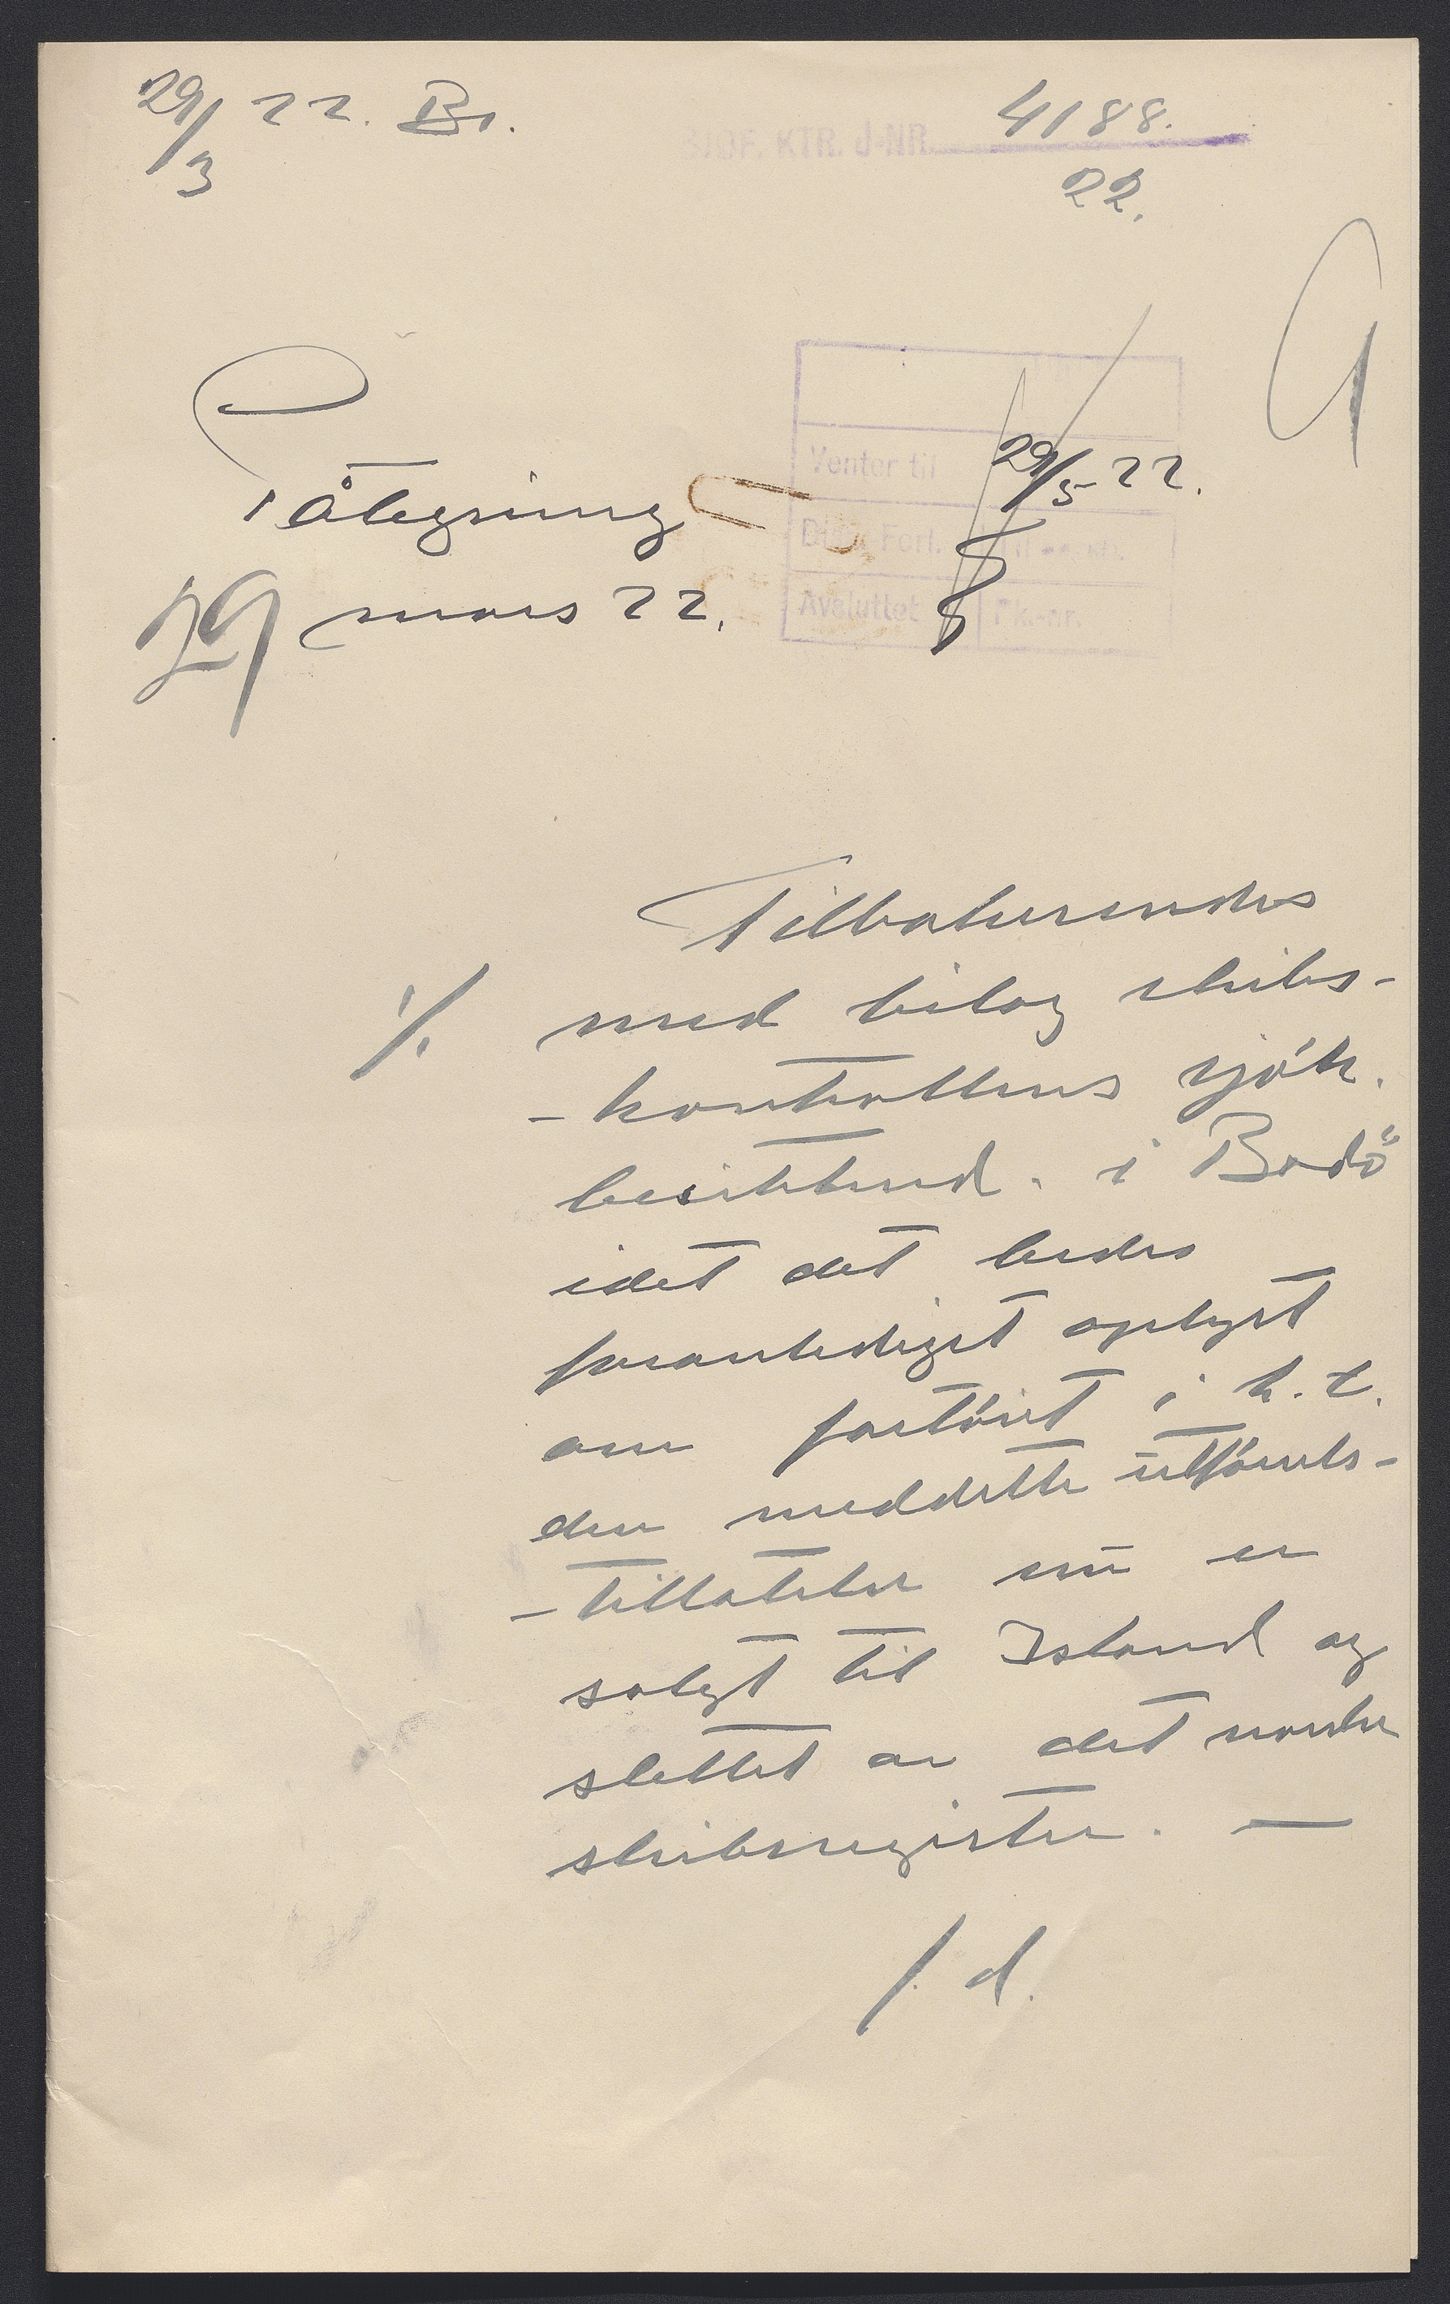 29/3 22. Br.
SJØF. KTR. J-NR. 4188.
22.
Påtegning
29 mars 22.
Venter til 29/5 22.
Avsluttet Pk.-nr.
Tilbakesendes
1/. med bilag skibs-
-kontrollens sjøk.
besiktmd. i Bodø
idet det bedes
foranlediget oplyst
om fartøiet i h.t.
den meddelte utførsels-
-tillatelse nu er
solgt til Island og
slettet av det norske
skibsregister. —
f. d.